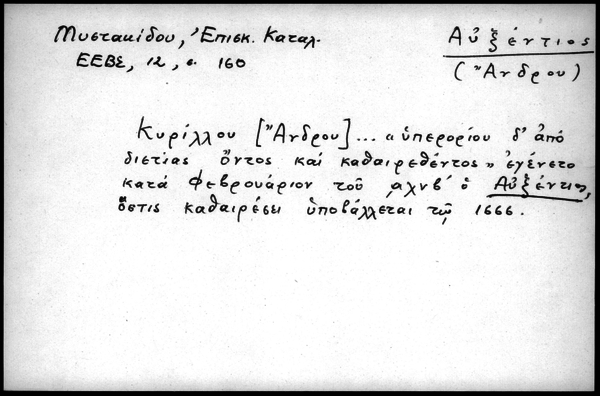 Μυστακίδου, Ἐπισκ. Καταλ.
ΕΕΒΣ, 12, σ. 160
Αὐξέντιος
(Ἄνδρου)
Κυρίλλου [Ἄνδρου]... «ὑπερορίου δ' ἀπό
διετίας ὄντος καί καθαιρεθέντος» ἐγένετο
κατά Φεβρουάριον τοῦ ͵αχνβ' ὁ Αὐξέντιος,
ὅστις καθαιρέσει ὑποβάλλεται τῷ 1666.